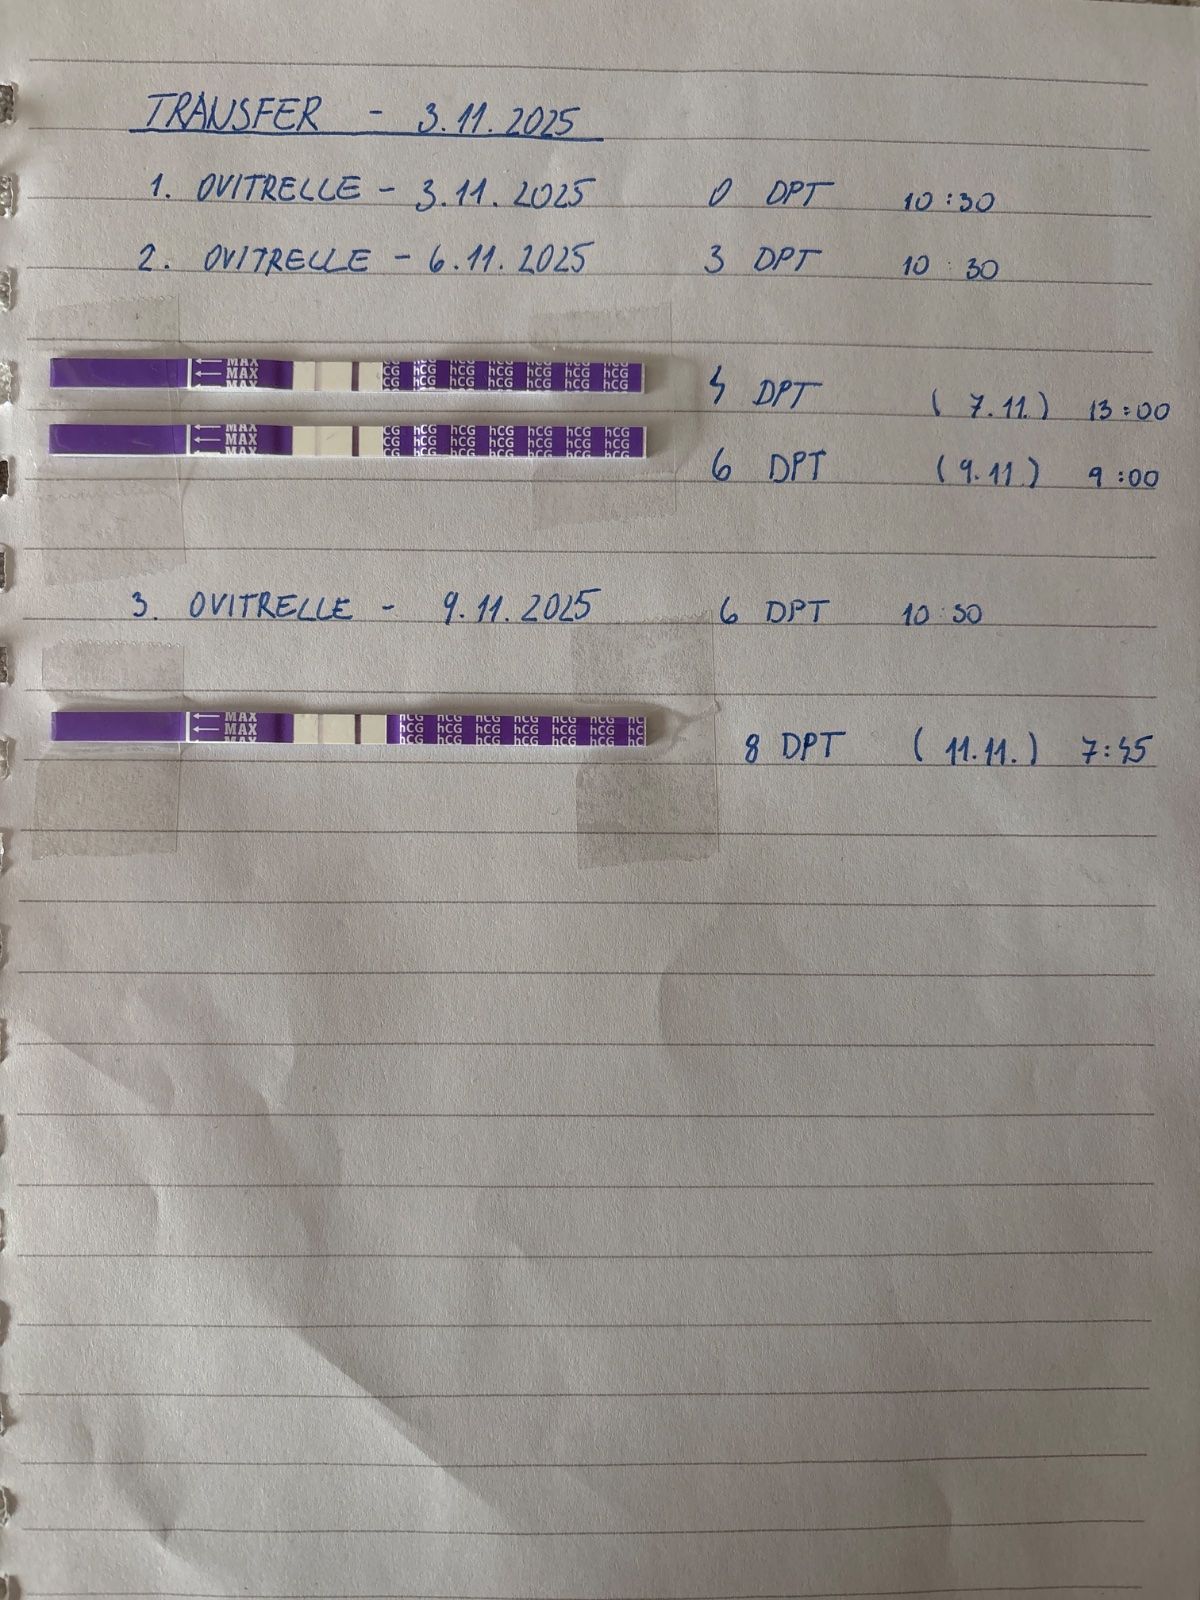 TRANSFER - 3.11.2025
1. OVITRELLE - 3.11.2025 0 DPT 10:30
2. OVITRELLE - 6.11.2025 3 DPT 10:30
MAX hCG hCG hCG hCG hCG hCG
4 DPT (7.11.) 13:00
MAX hCG hCG hCG hCG hCG hCG
6 DPT (9.11.) 9:00
3. OVITRELLE - 9.11.2025 6 DPT 10:30
MAX hCG hCG hCG hCG hCG hCG
8 DPT (11.11.) 7:45